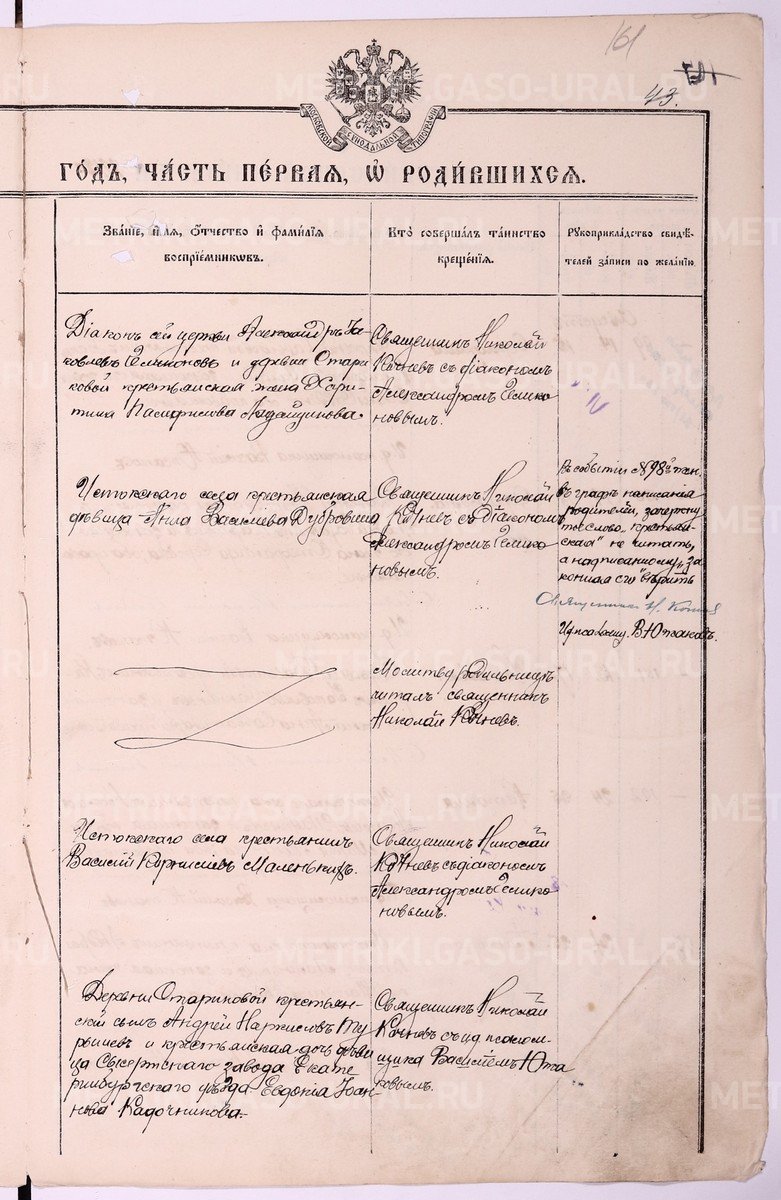 161
43.
МОСКОВСКОЙ СѴНОДАЛЬНОЙ ТИПОГРАФІИ
ГО́ДЪ, ЧА́СТЬ ПЕ́РВАЯ, Ѽ РОДИ́ВШИХСЯ.
Зва́ніе, и́мя, ѻ́тчество и҆ фами́лія
воспріе́мниковъ.
Кто̀ соверша́лъ та́инство
креще́нія.
Рꙋкоприкла́дство свидѣ́-
телей за́писи по жела́нію.
Діаконъ сей церкви Александръ Іа-
ковлевъ и деревни Стари
ковой крестьянская жена Хари-
тина
Священникъ Николай
Кочневъ съ діакономъ
Александромъ
новымъ.
Истокскаго села крестьянская
дѣвица Анна Васильева Дубровина
Священникъ Николай
Кочневъ съ діакономъ
Александромъ
новымъ.
Въ событіи №98
въ графѣ написанія
родителей, зачеркну
тое слово „крестьян
ская" не читать,
а надписанному „за
конная его" вѣрить
Священникъ Н. Кочнев
В Ютановъ.
Молитву родильницѣ
читалъ священникъ
Николай Кочневъ.
Истокскаго села крестьянинъ
Василій Корниліевъ Маленькихъ.
Священникъ Николай
Кочневъ съ діакономъ
Александромъ
новымъ.
Деревни Стариковой крестьян-
скій сынъ Андрей Наркисовъ
и крестьянская дочь дѣви
ца Сысертскаго завода Екате
ринбургскаго уѣзда Евдокія Іоан-
нова Кадочникова.
Священникъ Николай
Кочневъ съ и.д. псалом-
щика Василіемъ Юта
ковымъ.
METRIKI.GASO-URAL.RU